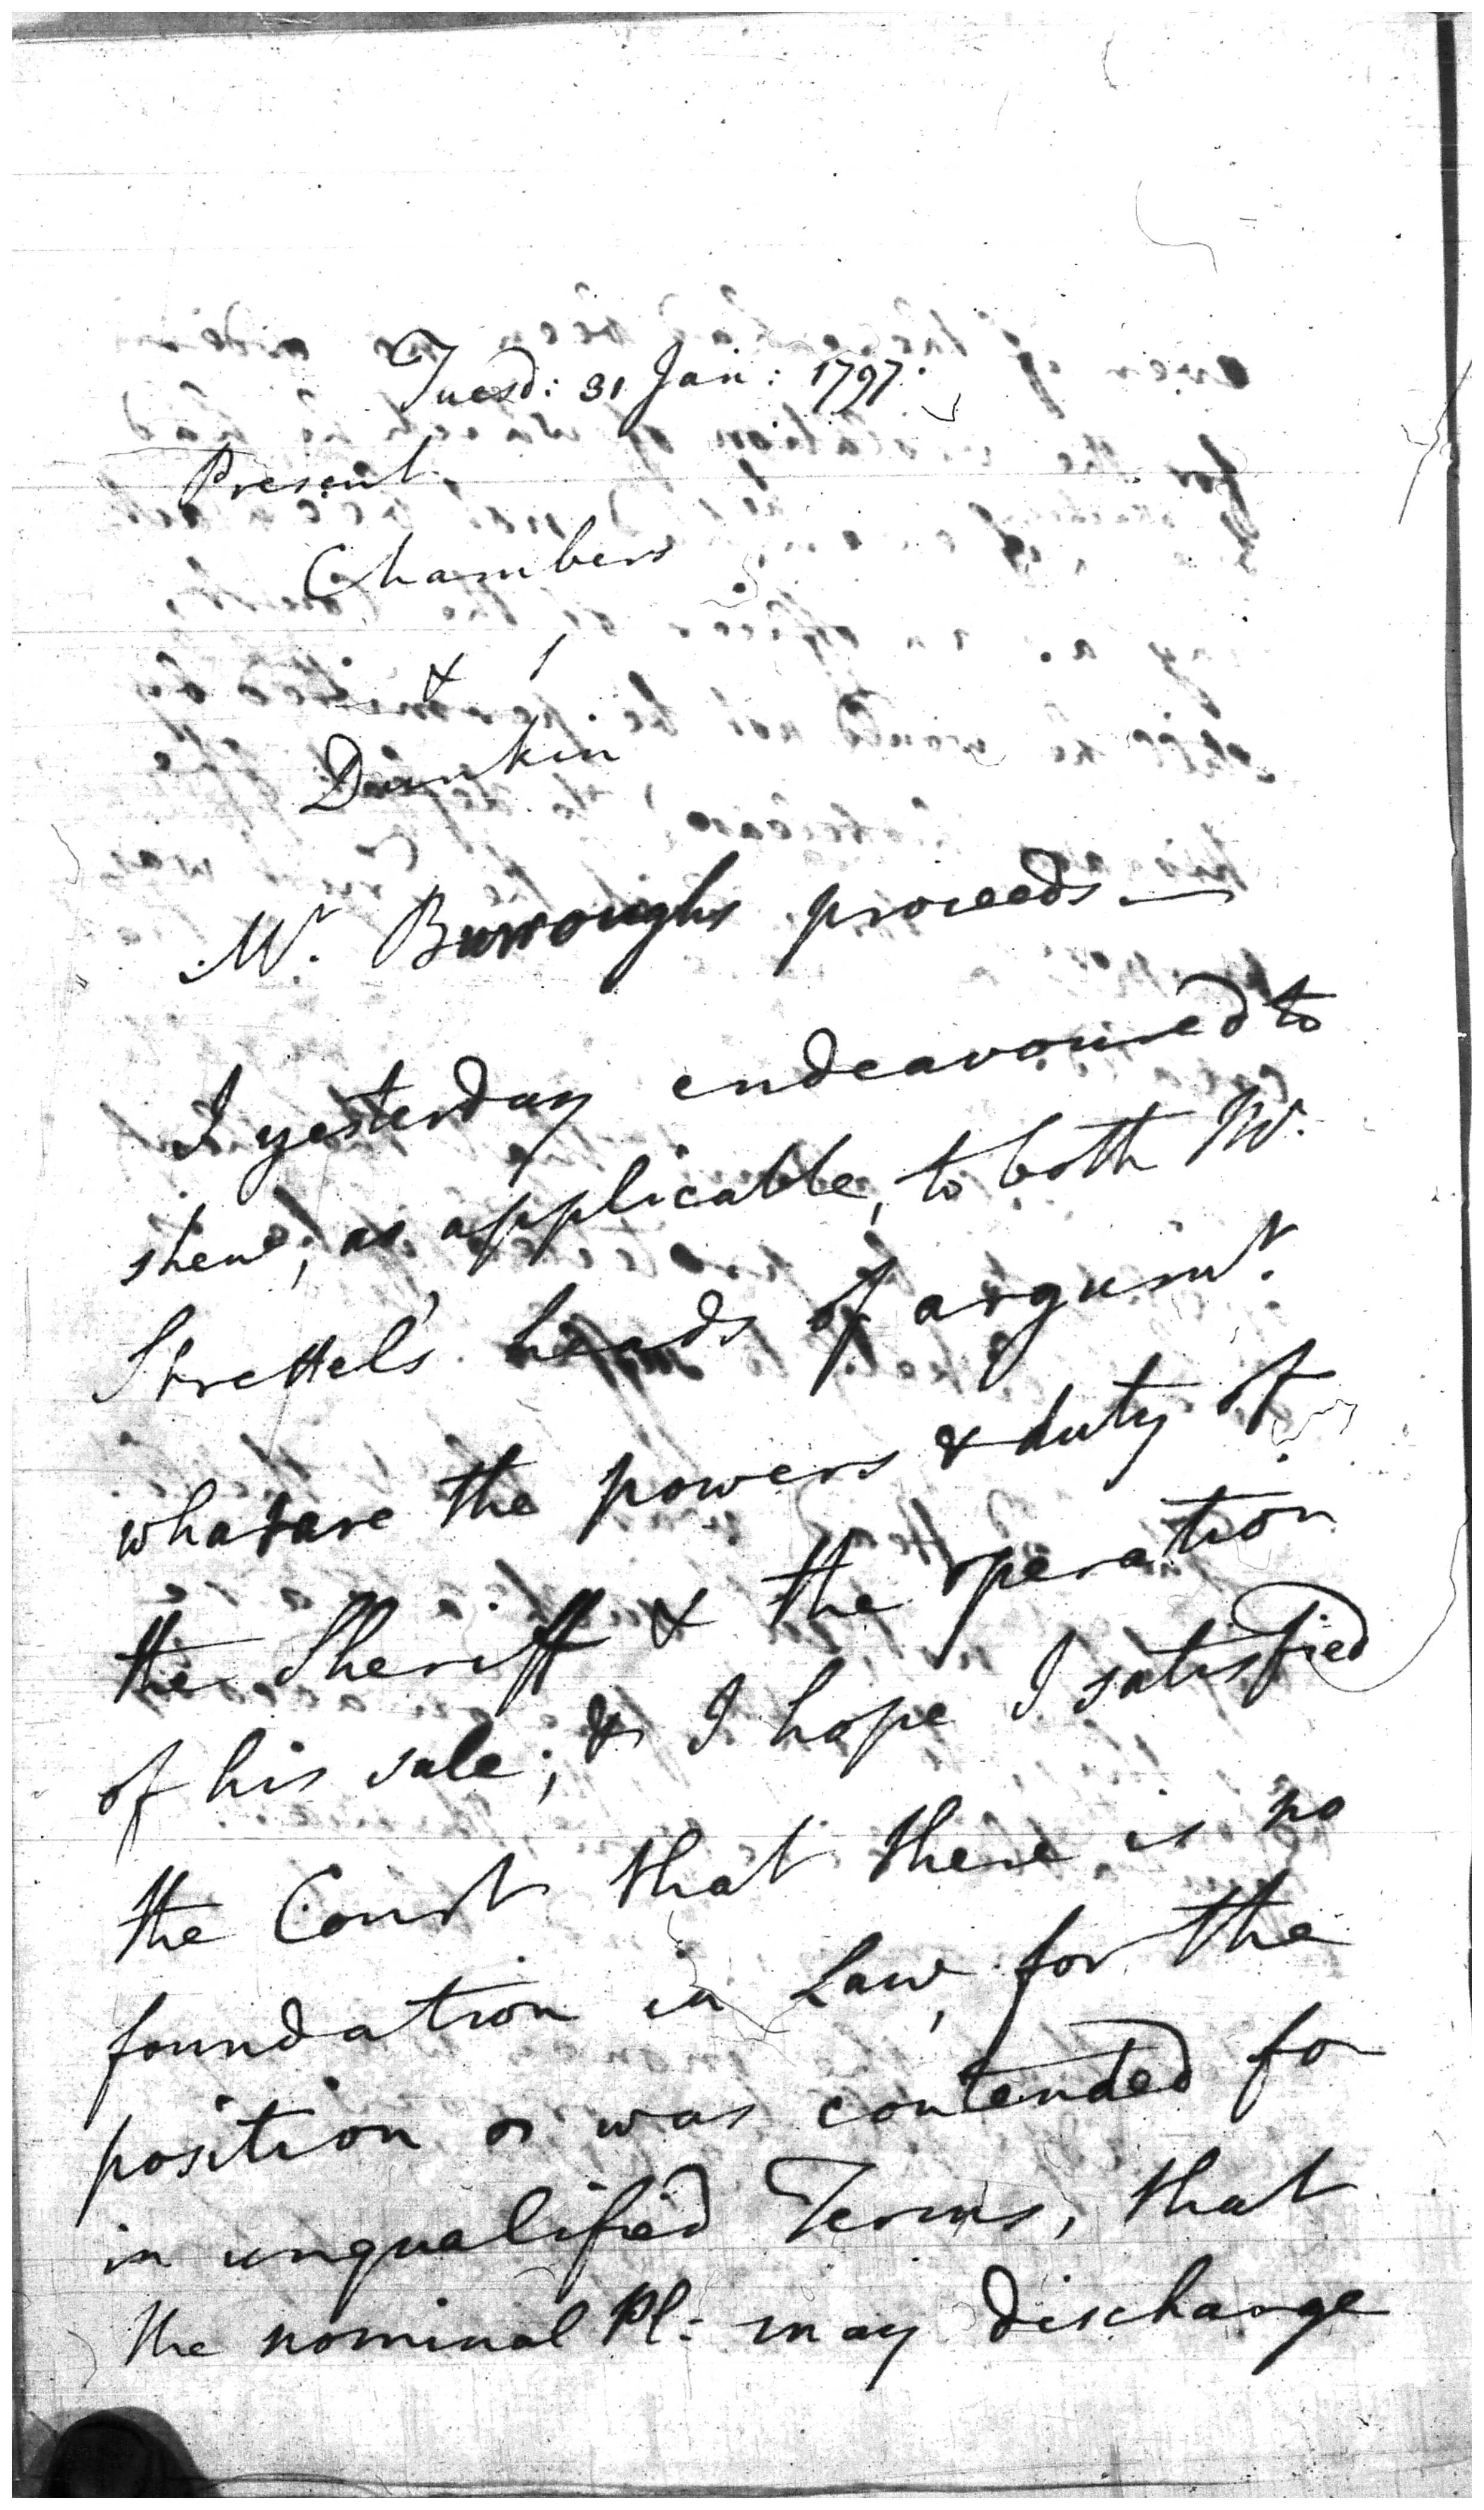 Tuesd: 31 Jan: 1797.
Present.
Chambers
&
Dunkin
Mr. Burroughs proceeds —
I yesterday endeavoured to
shew, as applicable, to both Mr.
Strettel's heads of argumt.
what are the powers & duty of
the Sheriff & the operation
of his sale; & I hope I satisfied
the Court that there is no
foundation in Law, for the
position as was contended for
in unqualified Terms, that
the nominal Pl: may discharge